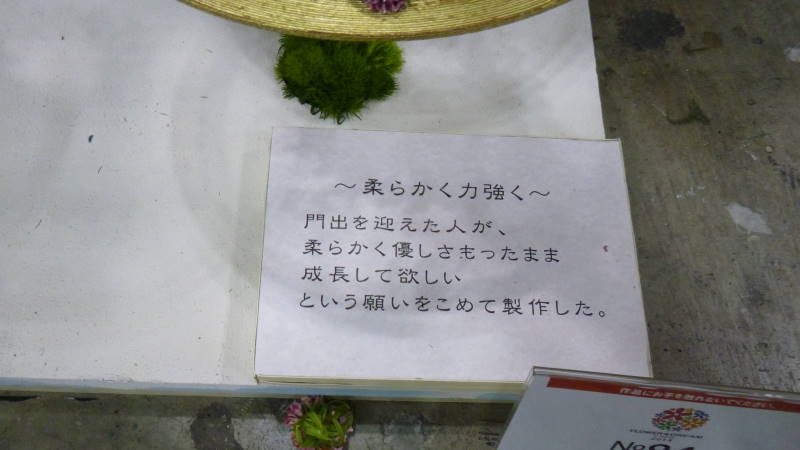 ～柔らかく力強く～
門出を迎えた人が、
柔らかく優しさもったまま
成長して欲しい
という願いをこめて製作した。
作品にお手を触れないでください。
FLOWER DREAM
2014